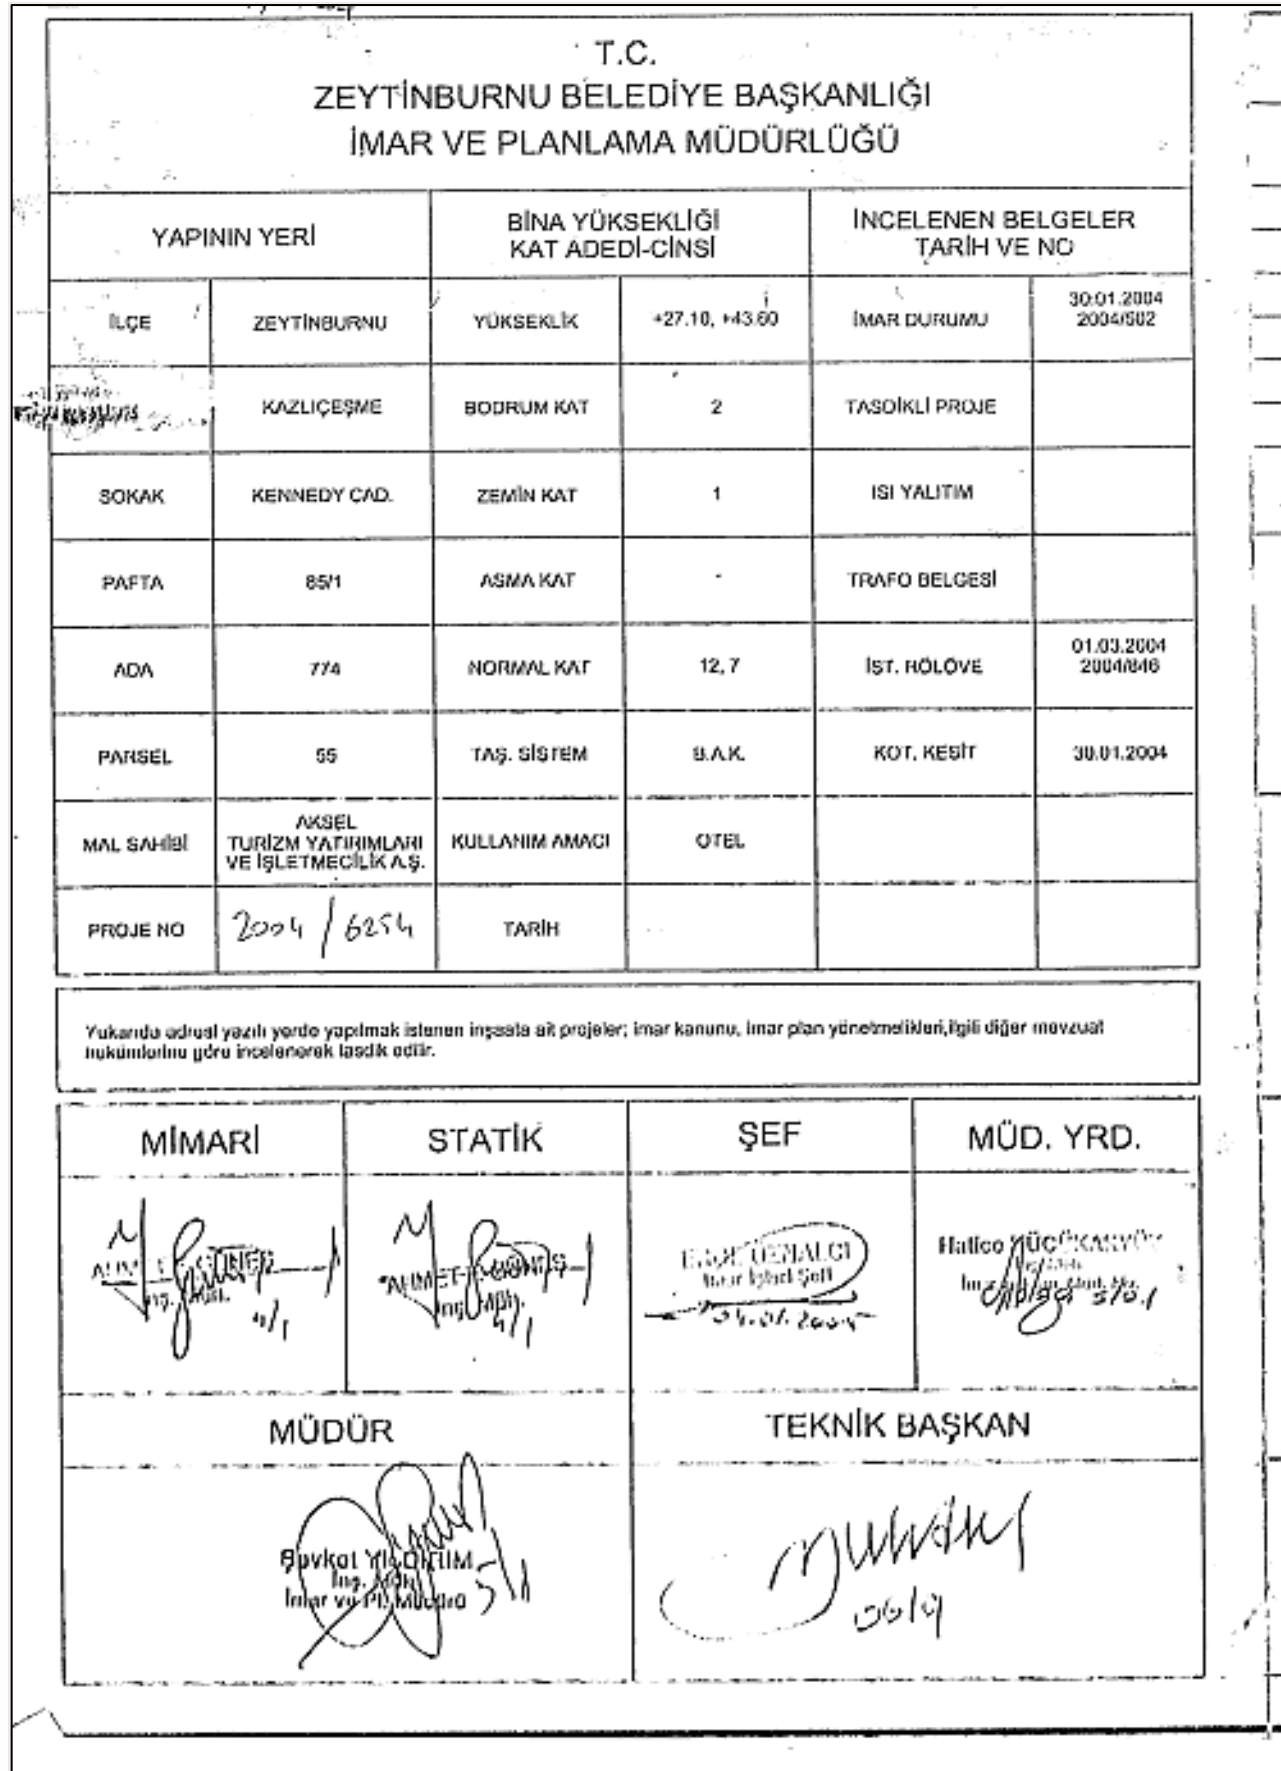 T.C.
ZEYTİNBURNU BELEDİYE BAŞKANLIĞI
İMAR VE PLANLAMA MÜDÜRLÜĞÜ
YAPININ YERİ
BİNA YÜKSEKLİĞİ
KAT ADEDİ-CİNSİ
İNCELENEN BELGELER
TARİH VE NO
İLÇE
ZEYTİNBURNU
YÜKSEKLİK
+27.10, +43.60
İMAR DURUMU
30.01.2004
2004/502
KAZLIÇEŞME
BODRUM KAT
2
TASDİKLİ PROJE
SOKAK
KENNEDY CAD.
ZEMİN KAT
1
ISI YALITIM
PAFTA
85/1
ASMA KAT
-
TRAFO BELGESİ
ADA
774
NORMAL KAT
12, 7
İST. RÖLÖVE
01.03.2004
2004/846
PARSEL
55
TAŞ. SİSTEM
B.A.K.
KOT. KESİT
30.01.2004
MAL SAHİBİ
AKSEL
TURİZM YATIRIMLARI
VE İŞLETMECİLİK A.Ş.
KULLANIM AMACI
OTEL
PROJE NO
2004 / 6254
TARİH
Yukarıda adresi yazılı yerde yapılmak istenen inşaata ait projeler; imar kanunu, imar plan yönetmelikleri,ilgili diğer mevzuat
hükümlerine göre incelenerek tasdik edilir.
MİMARİ
STATİK
ŞEF
MÜD. YRD.
AHMET
İnş. Müh.
4/1
AHMET
İnş. Müh.
4/1
İmar İşleri Şefi
04.01.2005
Hatice
5/01
MÜDÜR
TEKNİK BAŞKAN
Şevket YILDIRIM
İnş. Müh.
İmar ve Pl. Müdürü
5/1